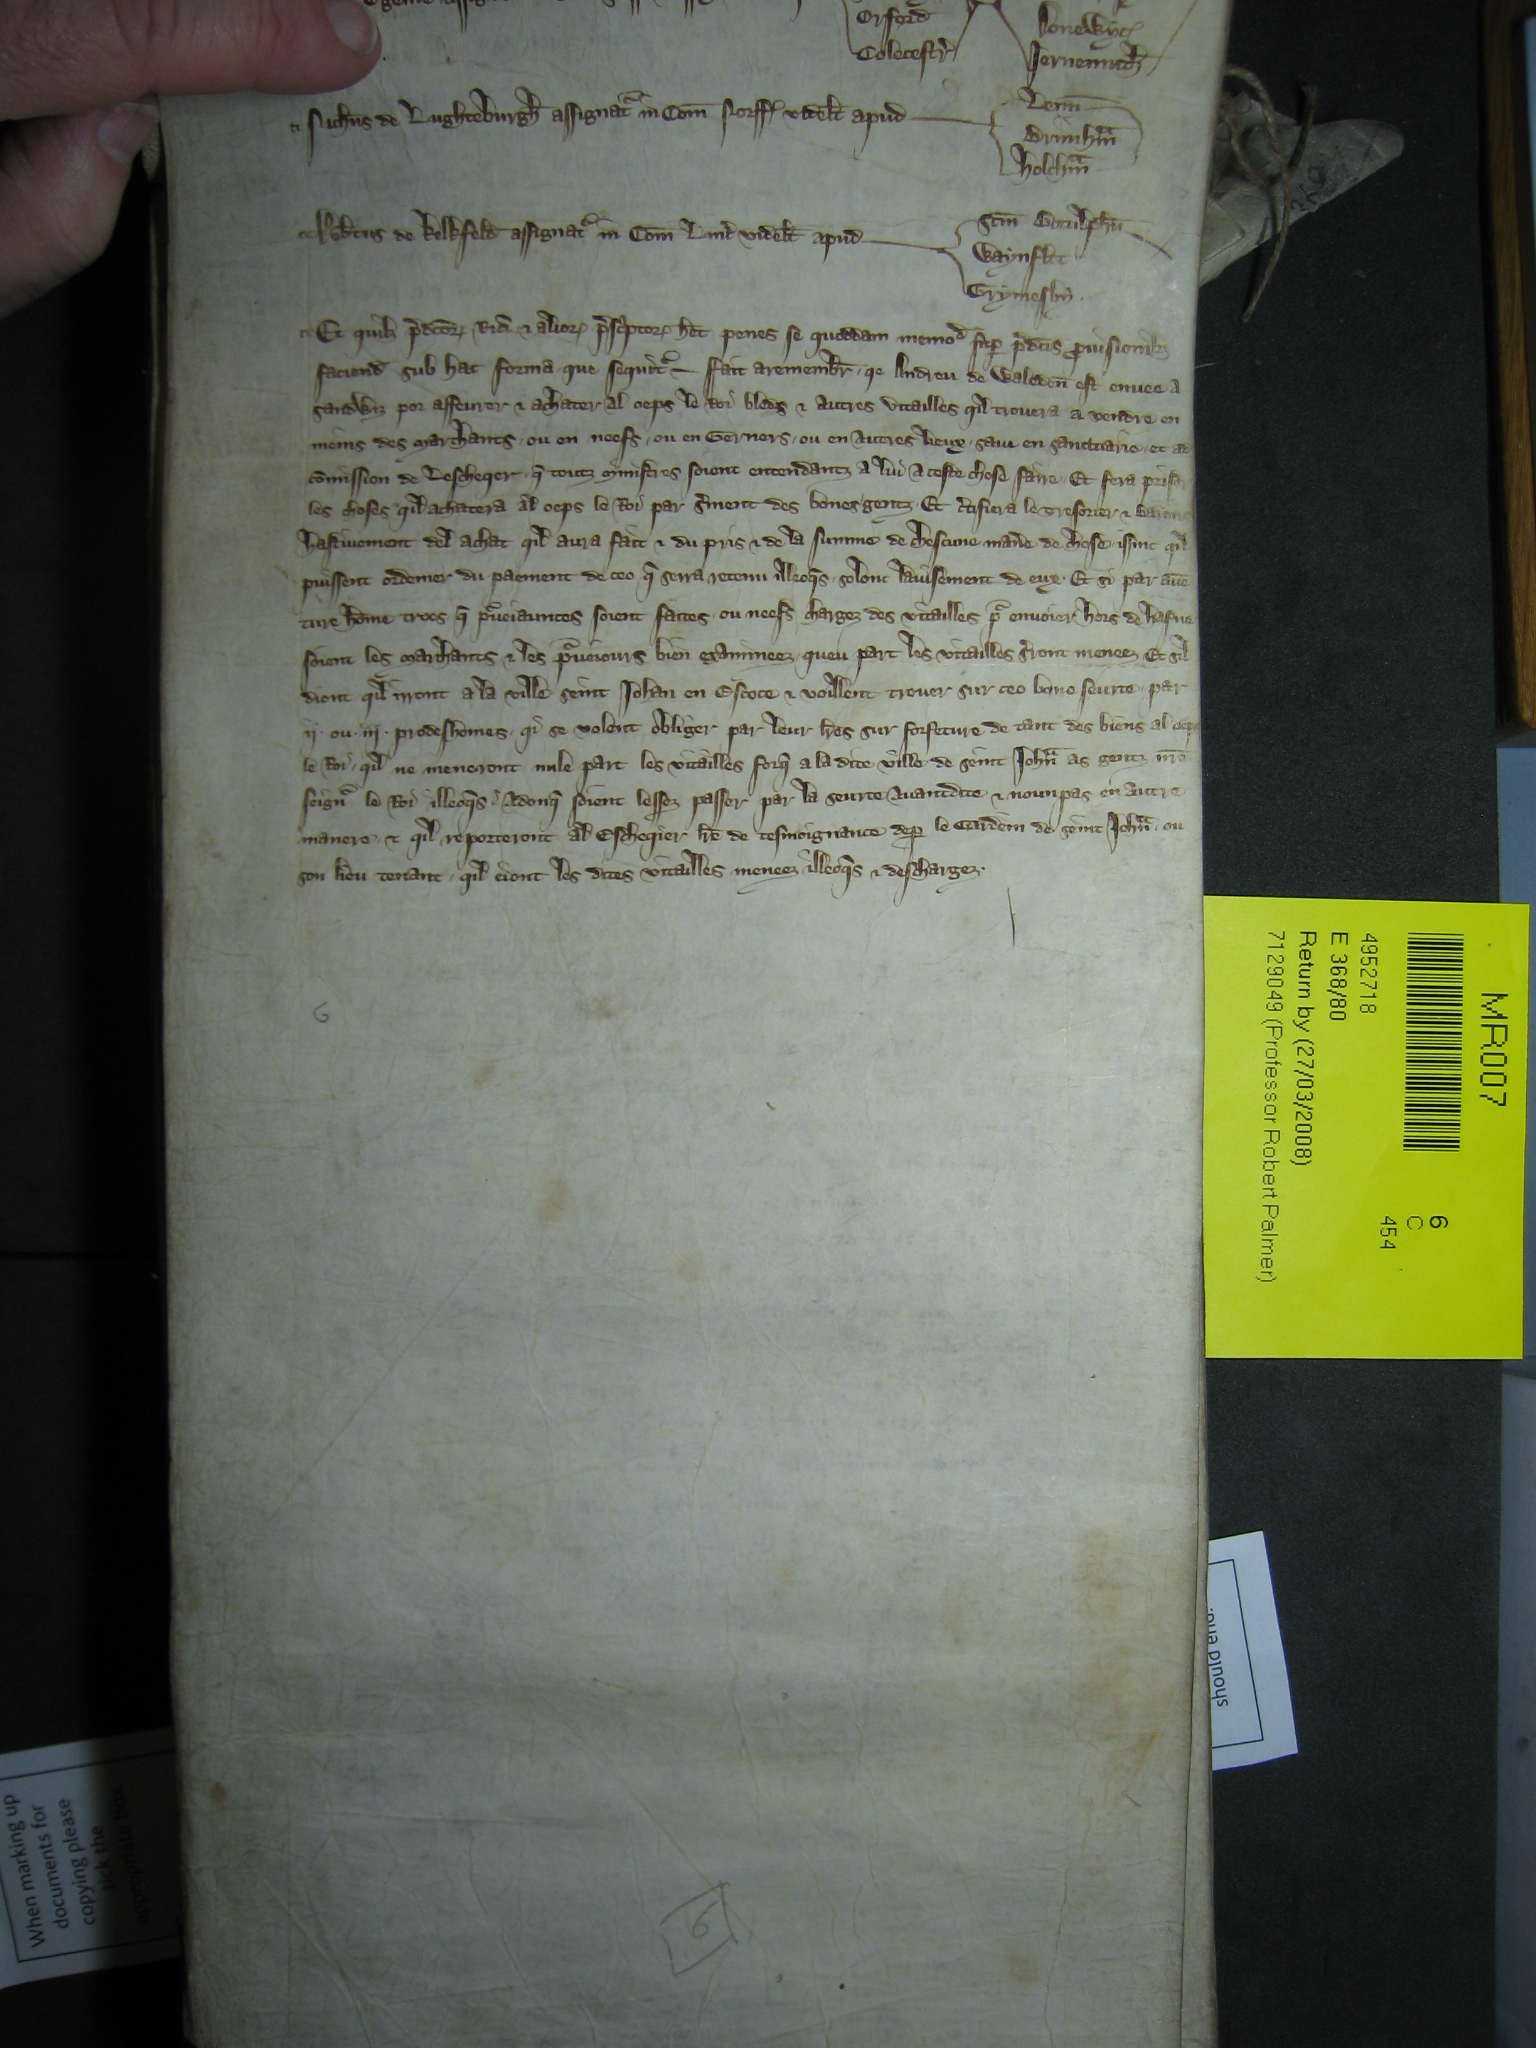 Orford
Donewyc
Colecestr
Jernemuth
Nichus de Lughteburgh assignat in Com Norff videlt apud
Lenn
Brunhm
Holchm
Robtus de Kelkfeld assignat in Com Linc videlt apud
Scm Botulphu
Waynflet
Grymesby
Et quilz pdcor Rici & alior pscptor het penes se quoddam memod sup pdcis pvisionibz
faciend sub hac forma que sequit Fait a remembr qe Andreu de Waleden est envee a
Sandwiz por asseurer & achater al oeps le Roi bleds & autres vitailles qil trovera a vendre en
meins des marchants ou en neefs ou en Gerners ou en autres lieux sauv en sanctuarie et ad
comission de Lescheqer q toutz ministres soient entendantz a lui a ceste chose faire Et fera priser
les choses qil achatera al oeps le Roi par serment des bones gentz Et certifiera le Tresorier & Barons
hastivement del achat qil aura fait & du pris & de la summe de chescune mane de chose issint qil
puissent ordeiner du paement de ceo q serra retenu illeoqs solonc lavisement de eux Et si par aven
ture home troes q pveiaunces soient faites ou neefs chargez des vitailles pr envoier hors de havne
soient les marchants & les pveiours bien examineez queu part les vitailles seront menees Et sil
dient qil irront a la ville seint Johan en Escoce & voillent trover sur ceo bone seurte par
ij ou iij prodeshomes qi se volent obliger par leur lres sur forfeture de tant des biens al oeps
le Roi qil ne meneront nule part les vitailles forq a la dite ville de seint Johan as gentz nre
seignr le Roi illeoqs Adonq soient lessez passer par la seurte avantdite & nounpas en autre
manere & qil reporteront al Escheqier lre de tesmoignance dep le Gardein de seint Johan ou
son lieu tenant qil eiont les dites vitailles meneez illeoqs & deschargez
6
6
MR007
4952718
E 368/80
Return by (27/03/2008)
7129049 (Professor Robert Palmer)
6
C
454
should end.
When marking up
documents for
copying please
tick the
appropriate box